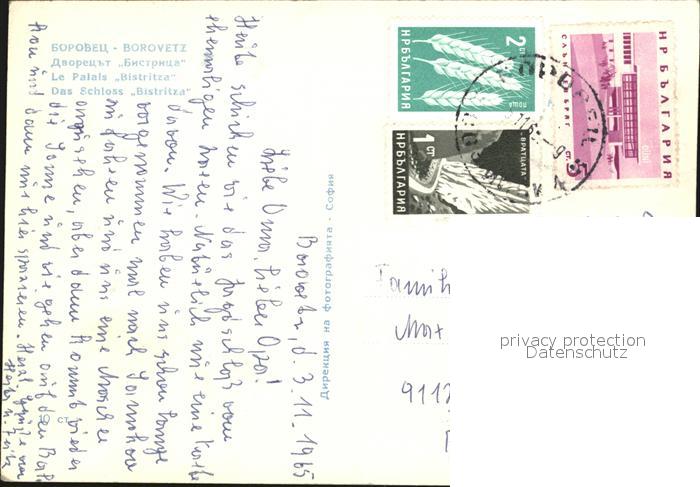 БОРОВЕЦ - BOROVETZ
Дворецът „Бистрица“
Le Palais „Bistritza“
Das Schloss „Bistritza“
Дирекция на фотографията - София
10 ст.
Borovetz, d. 3.11.1965
Liebe Oma, lieber Opa!
Heute schicken wir das Jagdschloß vom
ehemaligen Zaren. Natürlich nur eine Karte
davon. Wir haben uns schon lange
vorgenommen mal nach Samokov
zu fahren und uns eine Moschee
anzusehen, aber dann kommt wieder
die Sonne und wir gehen auf den Berg
dann
spazieren. Herzl. Grüße von
НР БЪЛГАРИЯ
2 СТ
ПОЩА
НР БЪЛГАРИЯ
1 СТ
ВРАТЦАТА
НР БЪЛГАРИЯ
СЛЪНЧЕВ БРЯГ
5 СТ.
Famil
Max
9112
privacy protection
Datenschutz